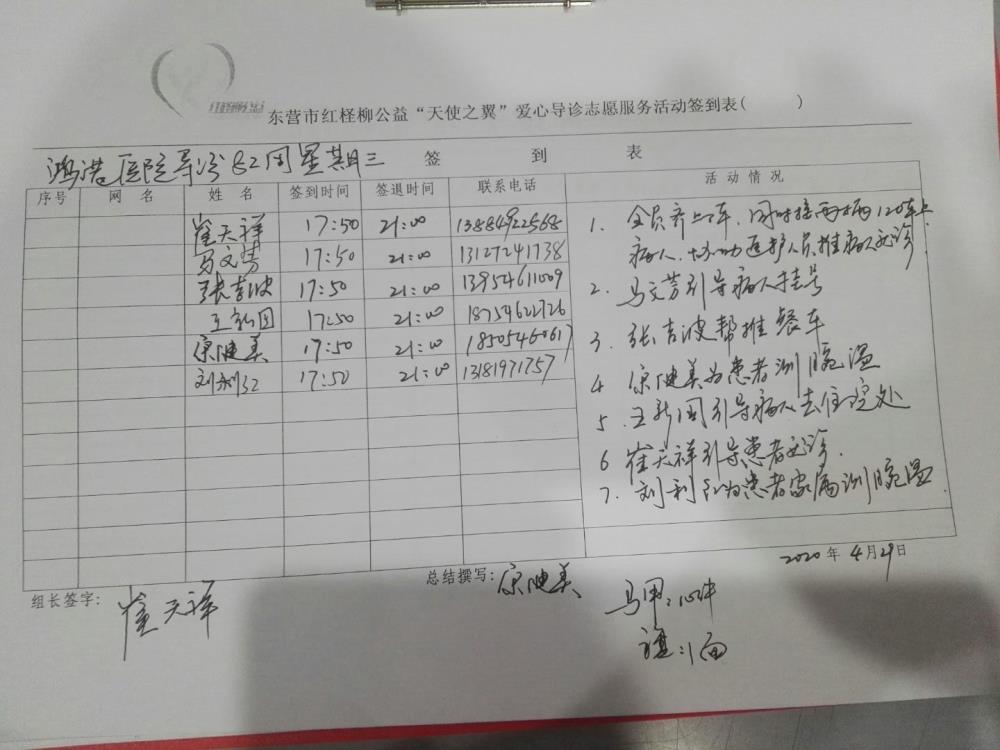 东营市红柽柳公益“天使之翼”爱心导诊志愿服务活动签到表( )
鸿港医院导诊82周星期三 签 到 表
序号 网 名 姓 名 签到时间 签退时间 联系电话 活 动 情 况
崔天祥 17:50 21:00 13884922568
马文芳 17:50 21:00 13127241738
张吉波 17:50 21:00 13954611009
王新国 17:50 21:00 18754622726
宗健美 17:50 21:00 18505460617
刘利红 17:50 21:00 13181971757
1. 全员齐上阵,同时接两辆120车上
病人,协助医护人员推病人就诊
2. 马文芳引导病人挂号
3. 张吉波帮推餐车
4 宗健美为患者测腕温
5. 王新国引导病人去住院处
6 崔天祥引导患者就诊.
7. 刘利红为患者家属测腕温
2020年4月29日
组长签字: 崔天祥
总结撰写: 宗健美
马甲:10件
旗:1面